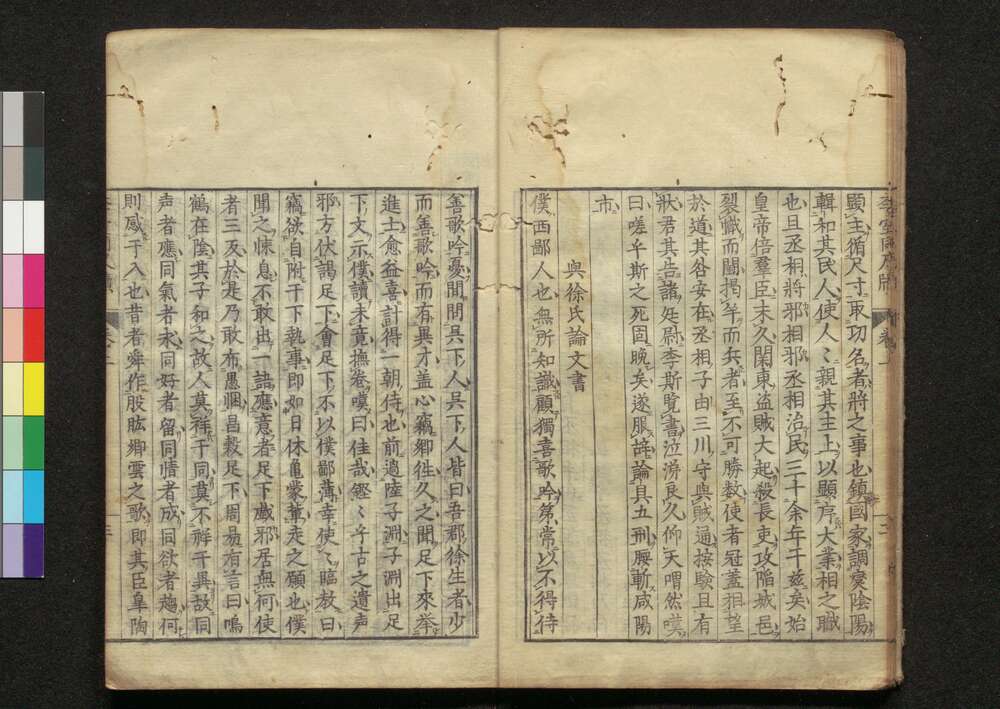 顕主循尺寸取功名者將之事也鎮國家調燮陰陽
輯和其民人使人〻親其主上以顕序大業相之職
也且丞相將邪相邪丞相治民三十余年于兹矣始
皇帝倍羣臣未久関東盗賊大起殺長吏攻陥城邑
裂幟而闘掲竿而兵者至不可勝数使者冠蓋相望
於道其咎安在丞相子由三川守與賊通按驗且有
狀君其告諸廷尉李斯覧書泣涕良久仰天喟然嘆
曰嗟乎斯之死固晚矣遂服辭論具五刑腰斬咸陽
市
與徐氏論文書
僕西鄙人也無所知識顧獨喜歌吟第常以不得侍
善歌吟憂間問吳下人吳下人皆曰吾郡徐生者少
而善歌吟而有異才盖心竊鄉徃久之聞足下來举
進士愈益喜計得一朝侍也前過陸子淵子淵出足
下文示僕讀未竟撫卷嘆曰佳哉鏗〻乎古之遺声
邪方伏謁足下會足下不以僕鄙薄幸使〻臨教曰
竊欲自附于下執事即如日休龜蒙輩走之願也僕
聞之悚息不敢出一語應意者足下戯邪居無何使
者三反於是乃敢布愚悃昌穀足下周易有言曰鳴
鶴在陰其子和之故人莫祥于同莫不祥于異故同
声者應同氣者求同好者留同情者成同欲者趨何
則感于入也昔者舜作股肱卿雲之歌即其臣皐陶